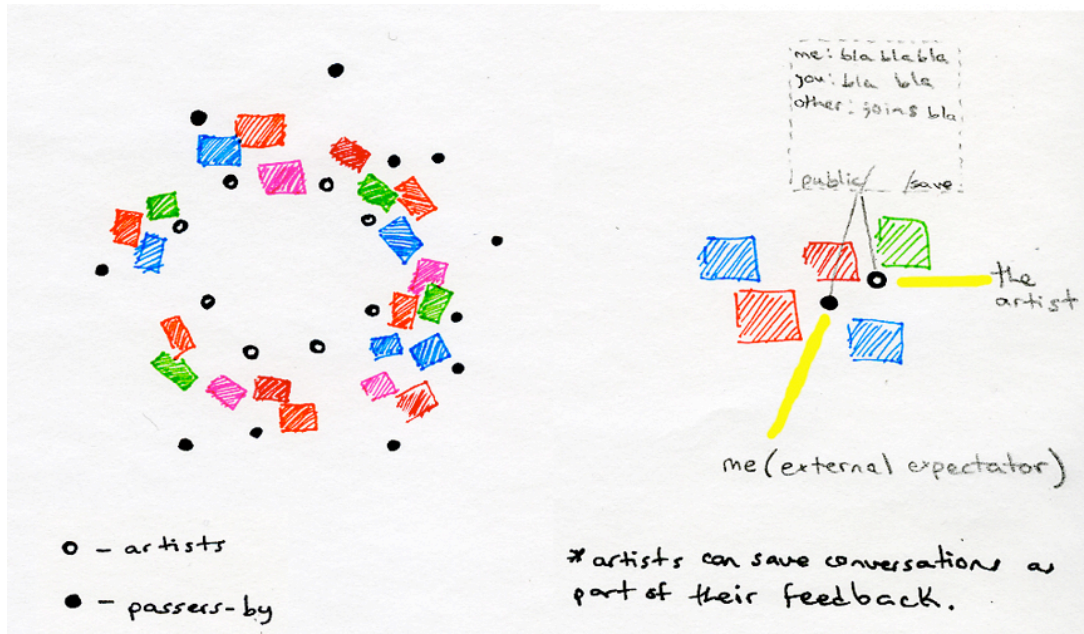 me: bla bla bla
you: bla bla
other: joins bla
public/ /save
the
artist
me (external expectator)
o - artists
● - passers-by
* artists can save conversations as
part of their feedback.